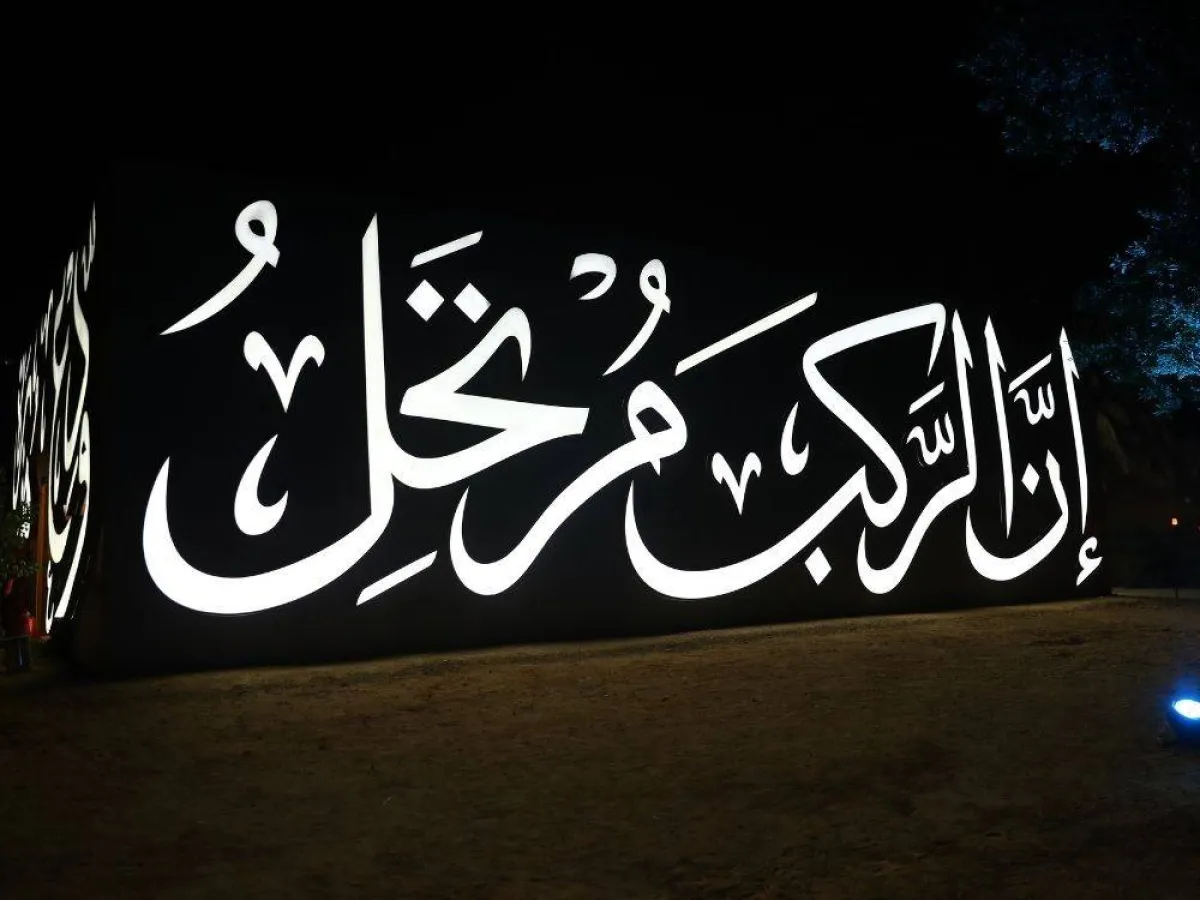 إِنَّ الرَّكبَ مُرتَحِلُ